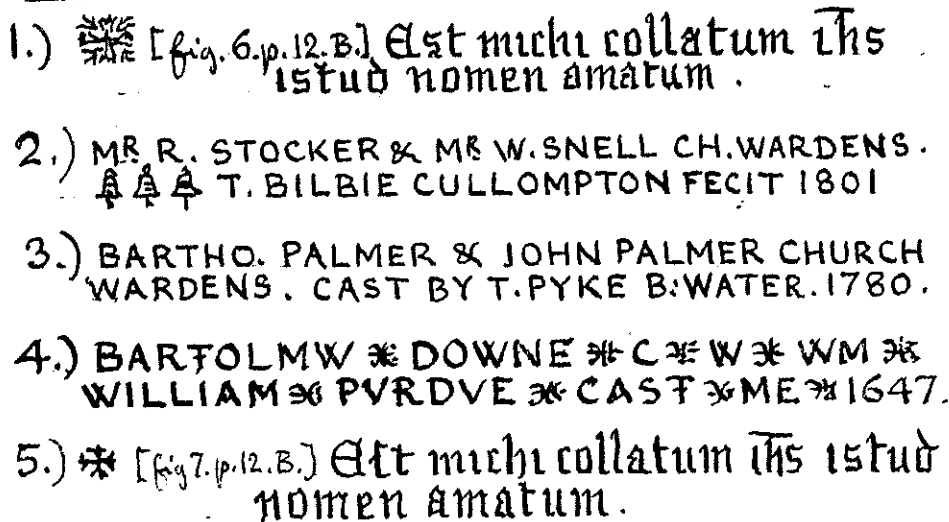 1.) [fig. 6. p. 12. B.] Est michi collatum ihs
istud nomen amatum .
2.) MR. R. STOCKER & MR W. SNELL CH. WARDENS .
T. BILBIE CULLOMPTON FECIT 1801
3.) BARTHO. PALMER & JOHN PALMER CHURCH
WARDENS . CAST BY T. PYKE B:WATER. 1780 .
4.) BARTOLMW DOWNE C W WM
WILLIAM PVRDVE CAST ME 1647.
5.) [fig 7. p. 12. B.] Est michi collatum ihs istud
nomen amatum .